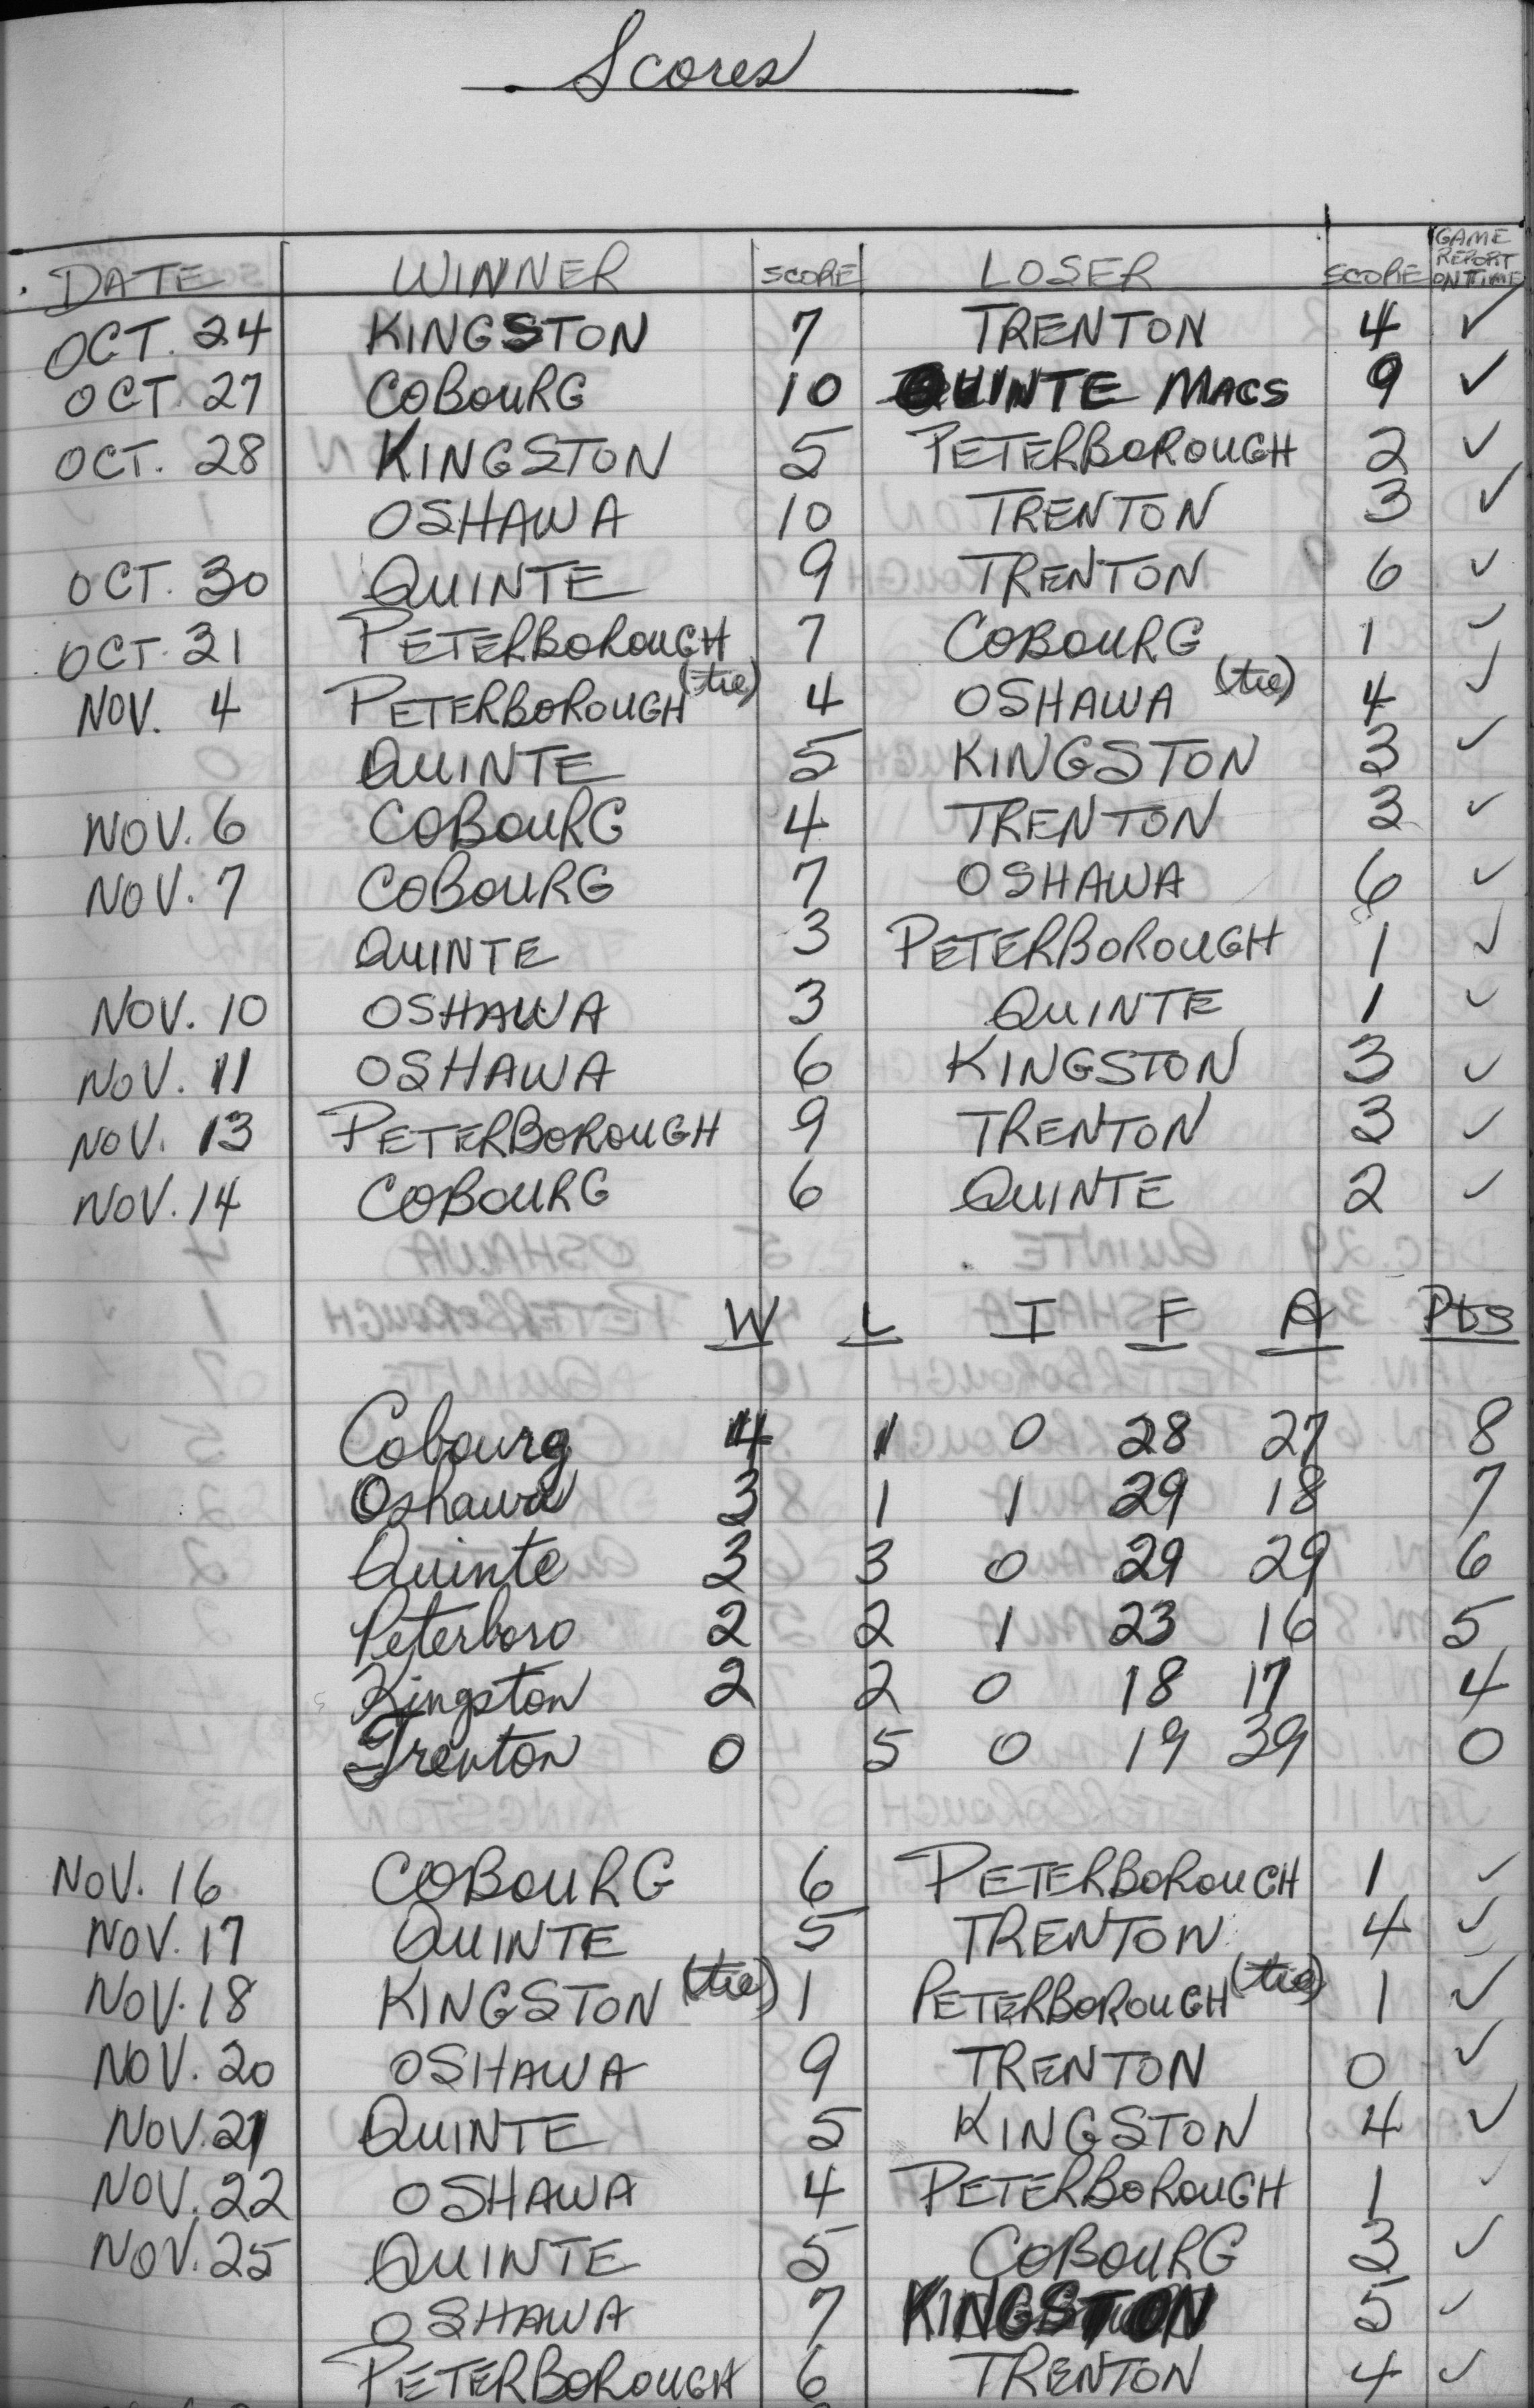 Scores
DATE WINNER SCORE LOSER SCORE GAME REPORT ON TIME
OCT. 24 KINGSTON 7 TRENTON 4 ✓
OCT. 27 COBOURG 10 QUINTE MACS 9 ✓
OCT. 28 KINGSTON 5 PETERBOROUGH 2 ✓
OSHAWA 10 TRENTON 3 ✓
OCT. 30 QUINTE 9 TRENTON 6 ✓
OCT. 31 PETERBOROUGH 7 COBOURG 1 ✓
NOV. 4 PETERBOROUGH (tie) 4 OSHAWA (tie) 4 ✓
QUINTE 5 KINGSTON 3 ✓
NOV. 6 COBOURG 4 TRENTON 3 ✓
NOV. 7 COBOURG 7 OSHAWA 6 ✓
QUINTE 3 PETERBOROUGH 1 ✓
NOV. 10 OSHAWA 3 QUINTE 1 ✓
NOV. 11 OSHAWA 6 KINGSTON 3 ✓
NOV. 13 PETERBOROUGH 9 TRENTON 3 ✓
NOV. 14 COBOURG 6 QUINTE 2 ✓
W L T F A Pts
Cobourg 4 1 0 28 27 8
Oshawa 3 1 1 29 18 7
Quinte 3 3 0 29 29 6
Peterboro 2 2 1 23 16 5
Kingston 2 2 0 18 17 4
Trenton 0 5 0 19 39 0
NOV. 16 COBOURG 6 PETERBOROUGH 1 ✓
NOV. 17 QUINTE 5 TRENTON 4 ✓
NOV. 18 KINGSTON (tie) 1 PETERBOROUGH (tie) 1 ✓
NOV. 20 OSHAWA 9 TRENTON 0 ✓
NOV. 21 QUINTE 5 KINGSTON 4 ✓
NOV. 22 OSHAWA 4 PETERBOROUGH 1 ✓
NOV. 25 QUINTE 5 COBOURG 3 ✓
OSHAWA 7 KINGSTON 5 ✓
PETERBOROUGH 6 TRENTON 4 ✓